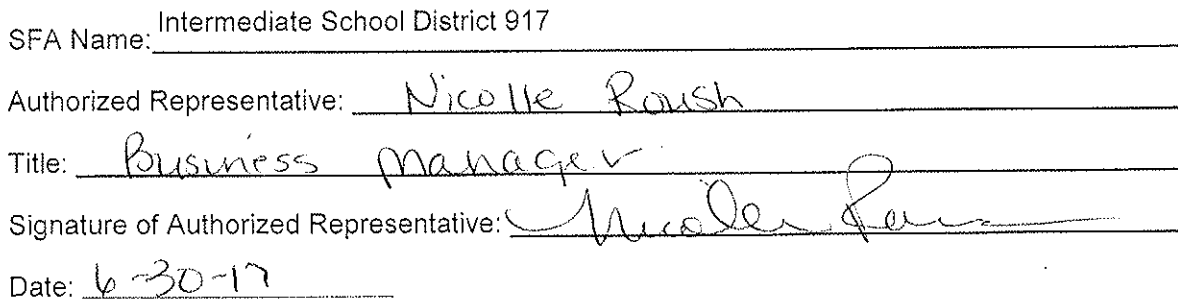 SFA Name: Intermediate School District 917
Authorized Representative: Nicolle Roush
Title: Business Manager
Signature of Authorized Representative: Nicolle Rous
Date: 6-30-17